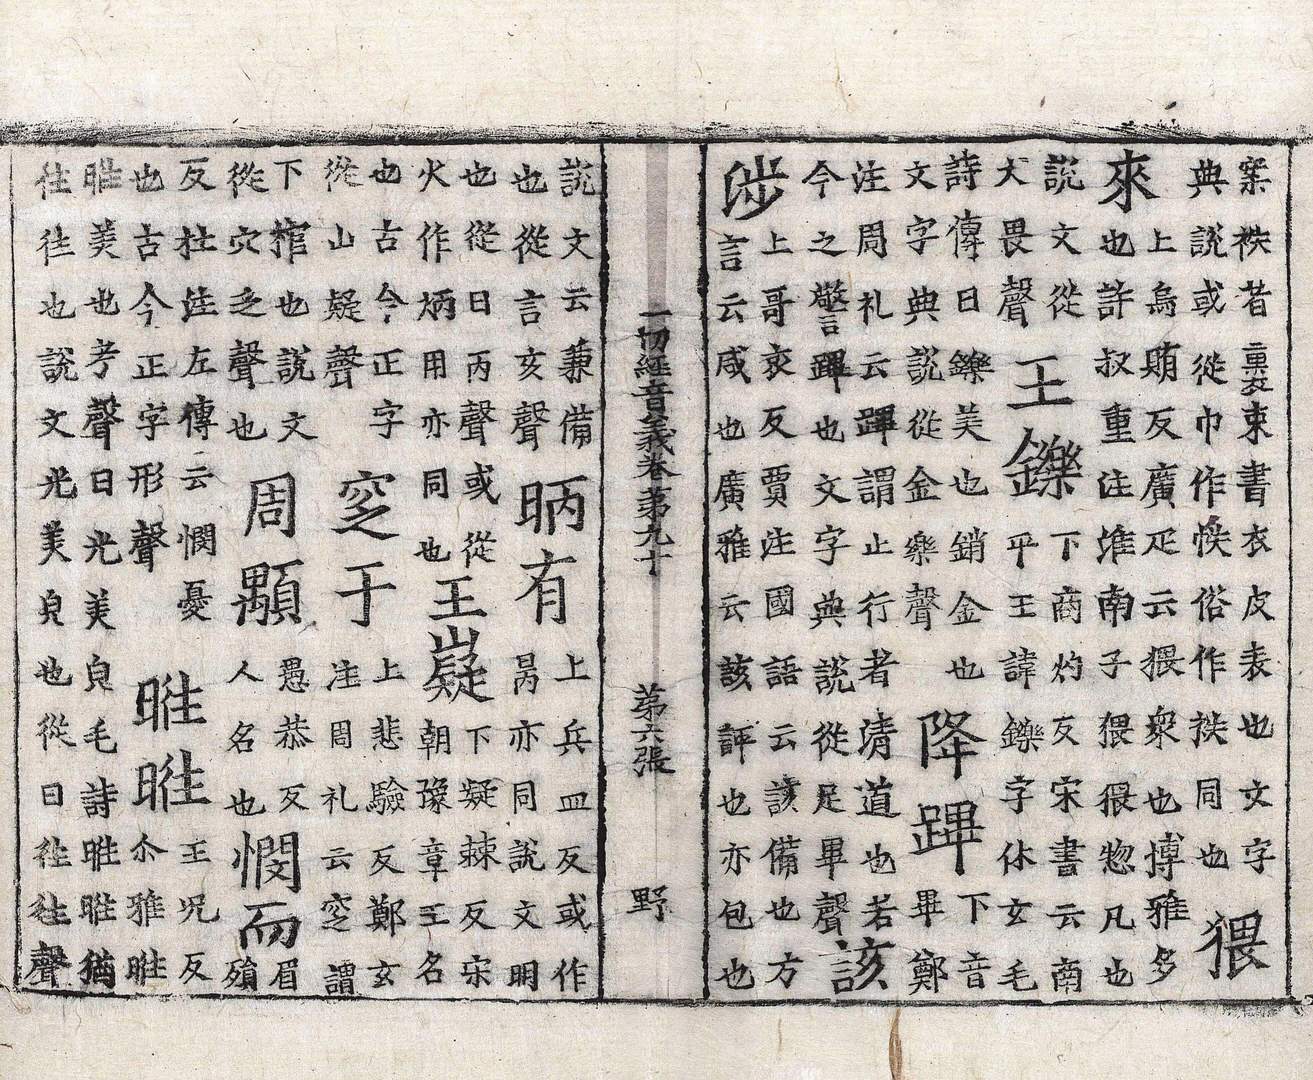 案袟者束書衣皮表也文字
典說或從巾作帙俗作袟同也
猥
來
上烏賄反廣疋云猥衆也博雅多
也許叔重注淮南子猥猥惚凡也
說文從
犬畏聲
王鑠
下商灼反宋書云南
平王諱鑠字休玄毛
詩傳曰鑠美也銷金也
文字典說從金樂聲
降蹕
下音
畢鄭
注周礼云蹕謂止行者清道也若
今之警蹕也文字典說從足畢聲
該
涉
上哥亥反賈注國語云該備也方
言云咸也廣雅云該評也亦包也
一切經音義卷第九十 第六張 野
說文云兼備
也從言亥聲
昞有
上兵皿反或作
昺亦同說文明
也從日丙聲或從
火作炳用亦同也
王嶷
下凝棘反宋
朝豫章王名
也古今正字
從山疑聲
窆于
上悲驗反鄭玄
注周礼云窆謂
下棺也說文
從穴乏聲也
周顒
愚恭反
人名也
憫而
眉
殞
反杜注左傳云憫憂
也古今正字形聲
暀暀
王況反
尒雅暀
暀美也考聲日光美皃毛詩暀暀猶
往往也說文光美皃也從日往往聲